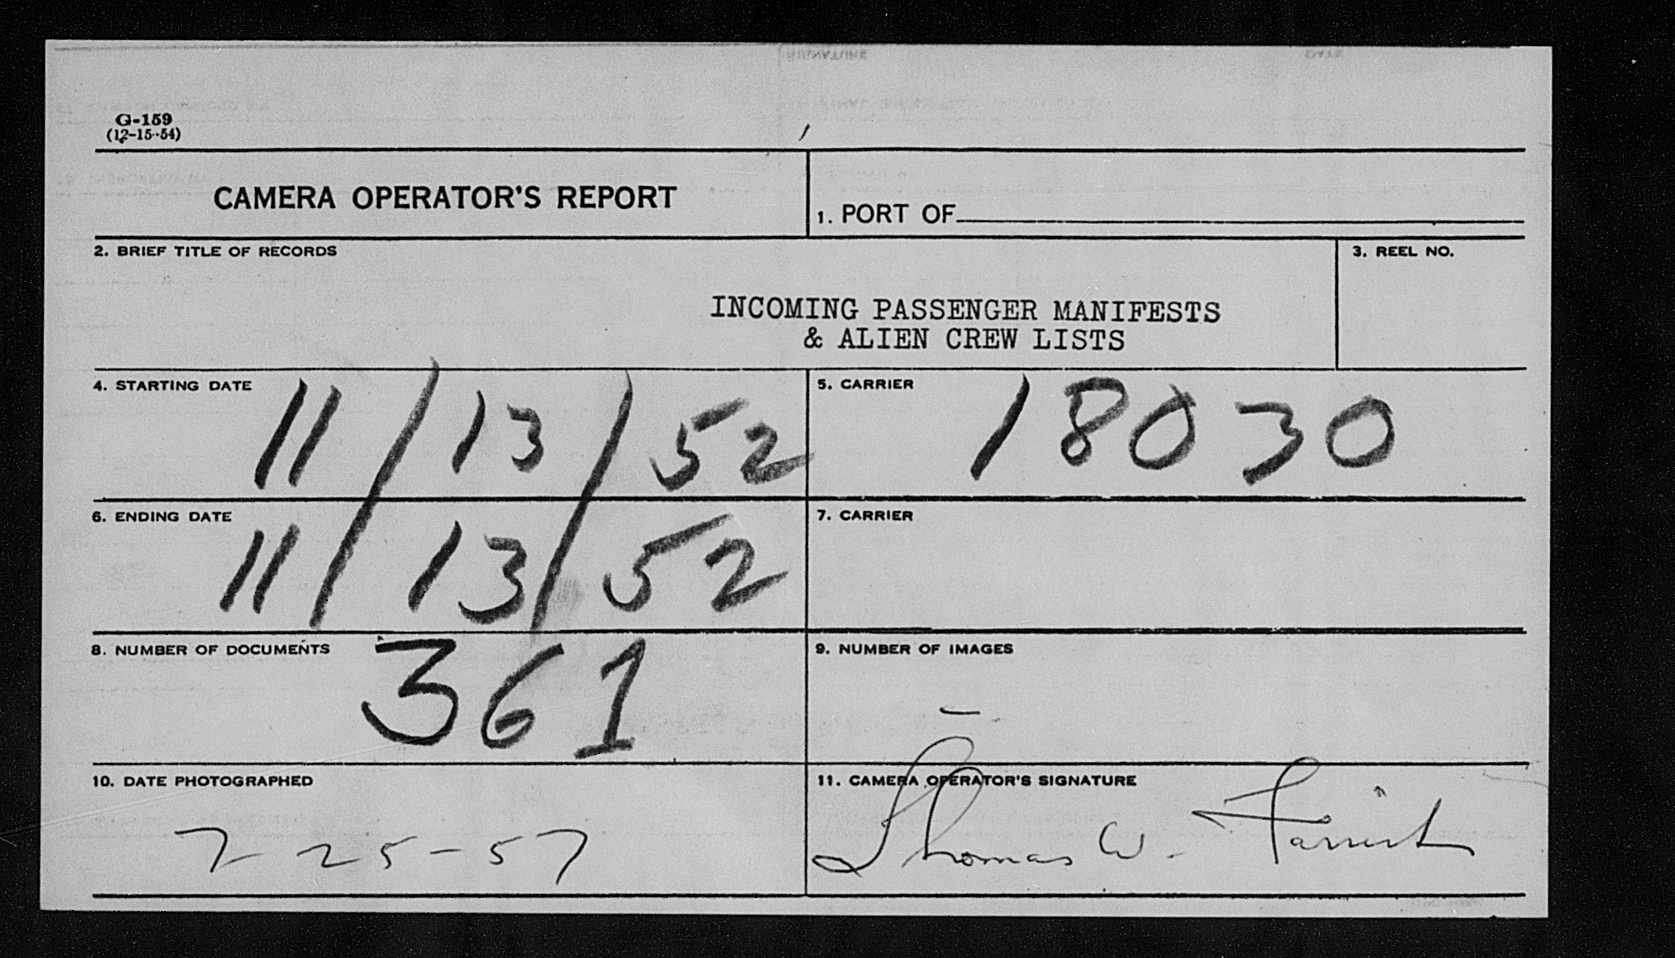 G-159
(12-15-54)
CAMERA OPERATOR'S REPORT
1. PORT OF
2. BRIEF TITLE OF RECORDS
3. REEL NO.
INCOMING PASSENGER MANIFESTS
& ALIEN CREW LISTS
4. STARTING DATE 11/13/52
5. CARRIER 18030
6. ENDING DATE 11/13/52
7. CARRIER
8. NUMBER OF DOCUMENTS 361
9. NUMBER OF IMAGES
10. DATE PHOTOGRAPHED
7-25-57
11. CAMERA OPERATOR'S SIGNATURE
Thomas W.